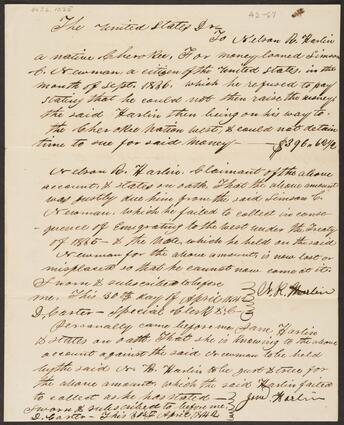 42-67
The United States Dr.
To Nelson R. Harlin
a native Cherokee, For money loaned Simson
C. Newman, a citizen of the United States, in the
month of Sept. 1836, which he refused to pay
stating that he could not then raise the money
the said Harlin then being on his way to
the Cherokee Nation west, & could not detain
time to sue for said money — $396.62½
Nelson R. Harlin, Claimant of the above
account, & states on oath That the above amount
was justly due him from the said Simson C.
Newman, which he failed to collect in conse-
quence of Emigrating to the west under the Treaty
of 1835 — & the Note, which he held on the said
Newman for the above amount is now lost or
misplaced so that he cannot now come at it.
Sworn & subscribed to before
me. This 30th day of April 1842
N. R. Harlin
D. Carter — Special Clerk &c
Personally came before me, Jane Harlin
& states on oath That she is knowing to the above
account against the said Newman to be held
by the said N. R. Harlin to be just & true for
the above amount, which the said Harlin failed
to collect as he has stated —
Sworn & subscribed to before me,
Jane Harlin
D. Carter — This 30th April 1842